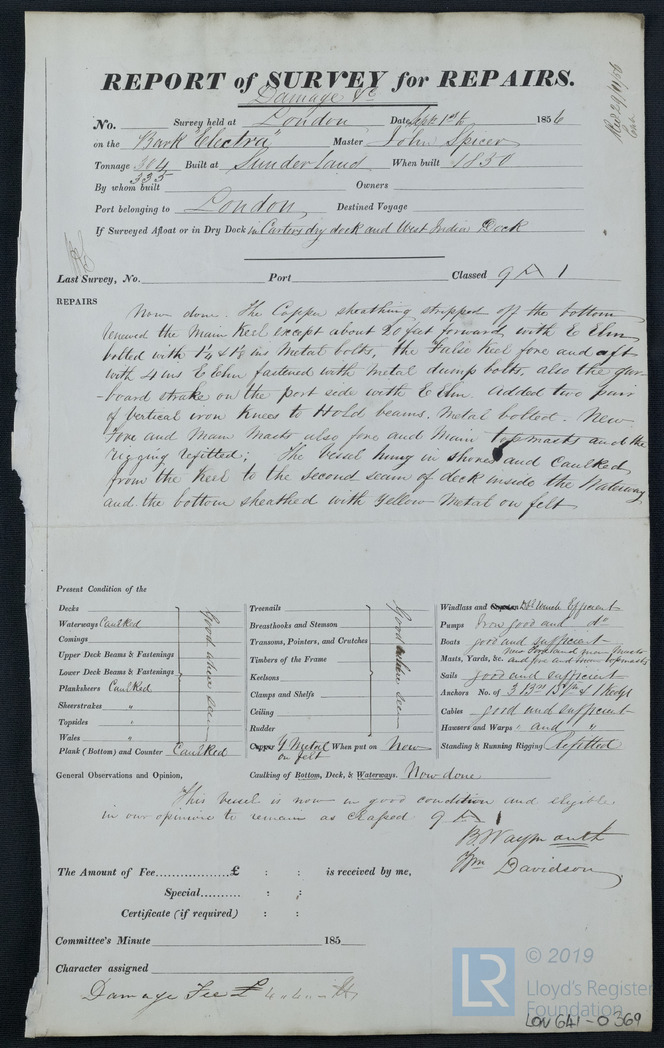 REPORT of SURVEY for REPAIRS.
Damage &c
No. Survey held at London Date Sept 1856
on the Bark "Electra" Master John Spicer
Tonnage 304 Built at Sunderland When built 1830
335
By whom built Owners
Port belonging to London Destined Voyage
If Surveyed Afloat or in Dry Dock in Carters dry dock and West India Dock
Last Survey, No. Port Classed 9 A 1
REPAIRS
Now done. The Copper sheathing stripped off the bottom
renewed the Main Keel except about 20 feet forward with E Elm
bolted with 1 1/8 ins Metal bolts, the False Keel fore and aft
with 4 ins E Elm fastened with Metal dump bolts, also the gar-
-board strake on the port side with E Elm. Added two pair
of vertical iron Knees to Hold beams. Metal bolted. New
Fore and Main Masts also fore and Main topmasts and the
rigging refitted; The Vessel hung in shores and Caulked
from the Keel to the second seam of deck inside the Waterway
and the bottom sheathed with Yellow Metal on felt
Present Condition of the
Decks
Waterways Caulked
Comings
Upper Deck Beams & Fastenings
Lower Deck Beams & Fastenings
Planksheers Caulked
Sheerstrakes "
Topsides "
Wales "
Plank (Bottom) and Counter Caulked
Good where seen
Treenails
Breasthooks and Stemson
Transoms, Pointers, and Crutches
Timbers of the Frame
Keelsons
Clamps and Shelfs
Ceiling
Rudder
Good where seen
Copper Y Metal When put on Now
on felt
Caulking of Bottom, Deck, & Waterways. Now done
Windlass and Capstan Efficient
Pumps Iron good and do
Boats good and sufficient
new Fore and main masts
Masts, Yards, &c. and fore and main topmasts
Sails good and sufficient
Anchors No. of 3 Br 1 Sth & 1 Kedge
Cables good and sufficient
Hawsers and Warps " and "
Standing & Running Rigging Refitted
General Observations and Opinion,
This Vessel is now in good condition and eligible
in our opinion to remain as classed 9 A 1
B Waymouth
Wm Davidson
The Amount of Fee £ : : is received by me,
Special : :
Certificate (if required) : :
Committee's Minute 185
Character assigned
Damage Fee £ 4 " 4 " -
LR © 2019
Lloyd's Register
Foundation
LON 641-0369